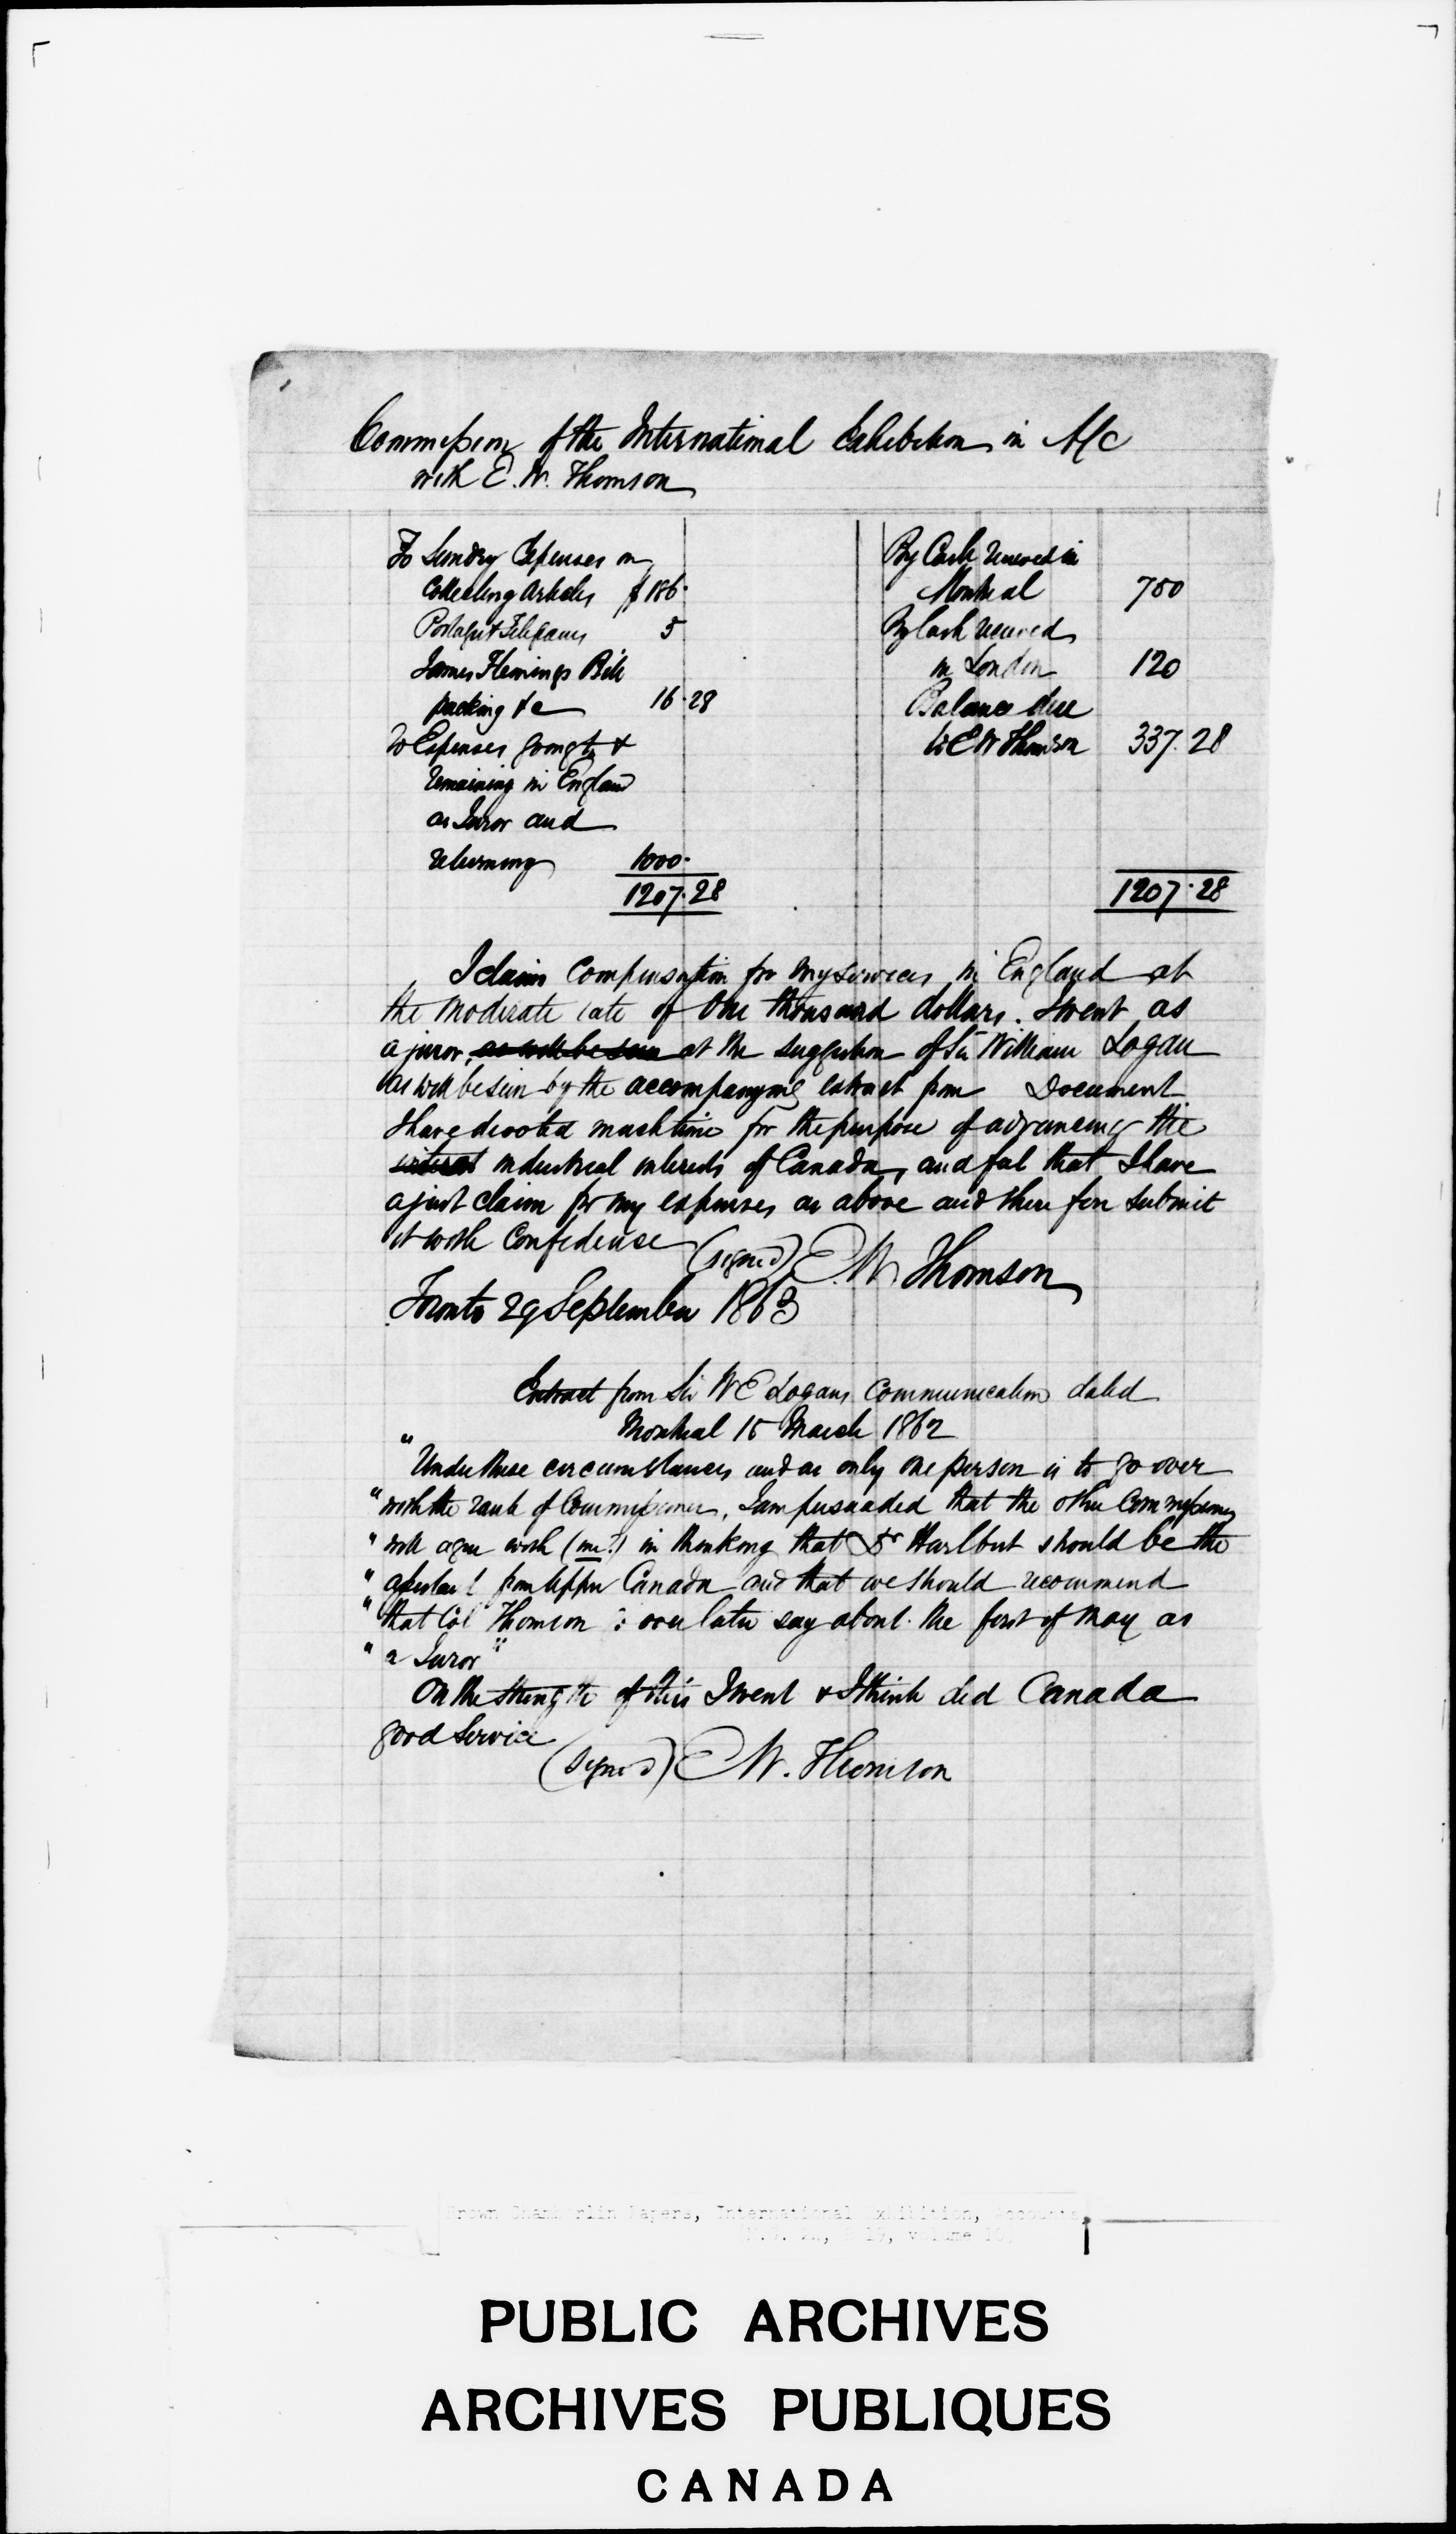 Commission of the International Exhibition in A/c
with E. W. Thomson
To Sundry Expenses on
Collecting Articles $ 186.
Postages & Telegrams 5
James Flemings Bill
packing &c 16.28
To Expenses going to &
remaining in England
as Juror and
returning 1000.
1207.28
By Cash received in
Montreal 750
By Cash received
in London 120
Balance due
to E W Thomson 337.28
1207.28
I claim compensation for my services in England at
the moderate rate of One thousand dollars. I went as
a juror, as will be seen at the suggestion of Sir William Logan
as will be seen by the accompanying extract from Document
I have devoted much time for the purpose of advancing the
interest industrial interests of Canada, and feel that I have
a just claim for my expenses as above and therefore submit
it with confidence
(signed) E. W. Thomson
Toronto 29 September 1863
Extract from Sir W E Logans Communication dated
Montreal 15 March 1862
"Under these circumstances and as only one person is to go over
"with the rank of Commissioner, I am persuaded that the other Commissioners
"will agree with (me?) in thinking that Dr Hurlburt should be the
"assistant from Upper Canada and that we should recommend
"that Col Thomson : over later say about the first of May as
"a Juror"
On the strength of this I went & I think did Canada
good service
(signed) E W. Thomson
Brown Chamberlin Papers, International Exhibition, Accounts,
PUBLIC ARCHIVES
ARCHIVES PUBLIQUES
CANADA